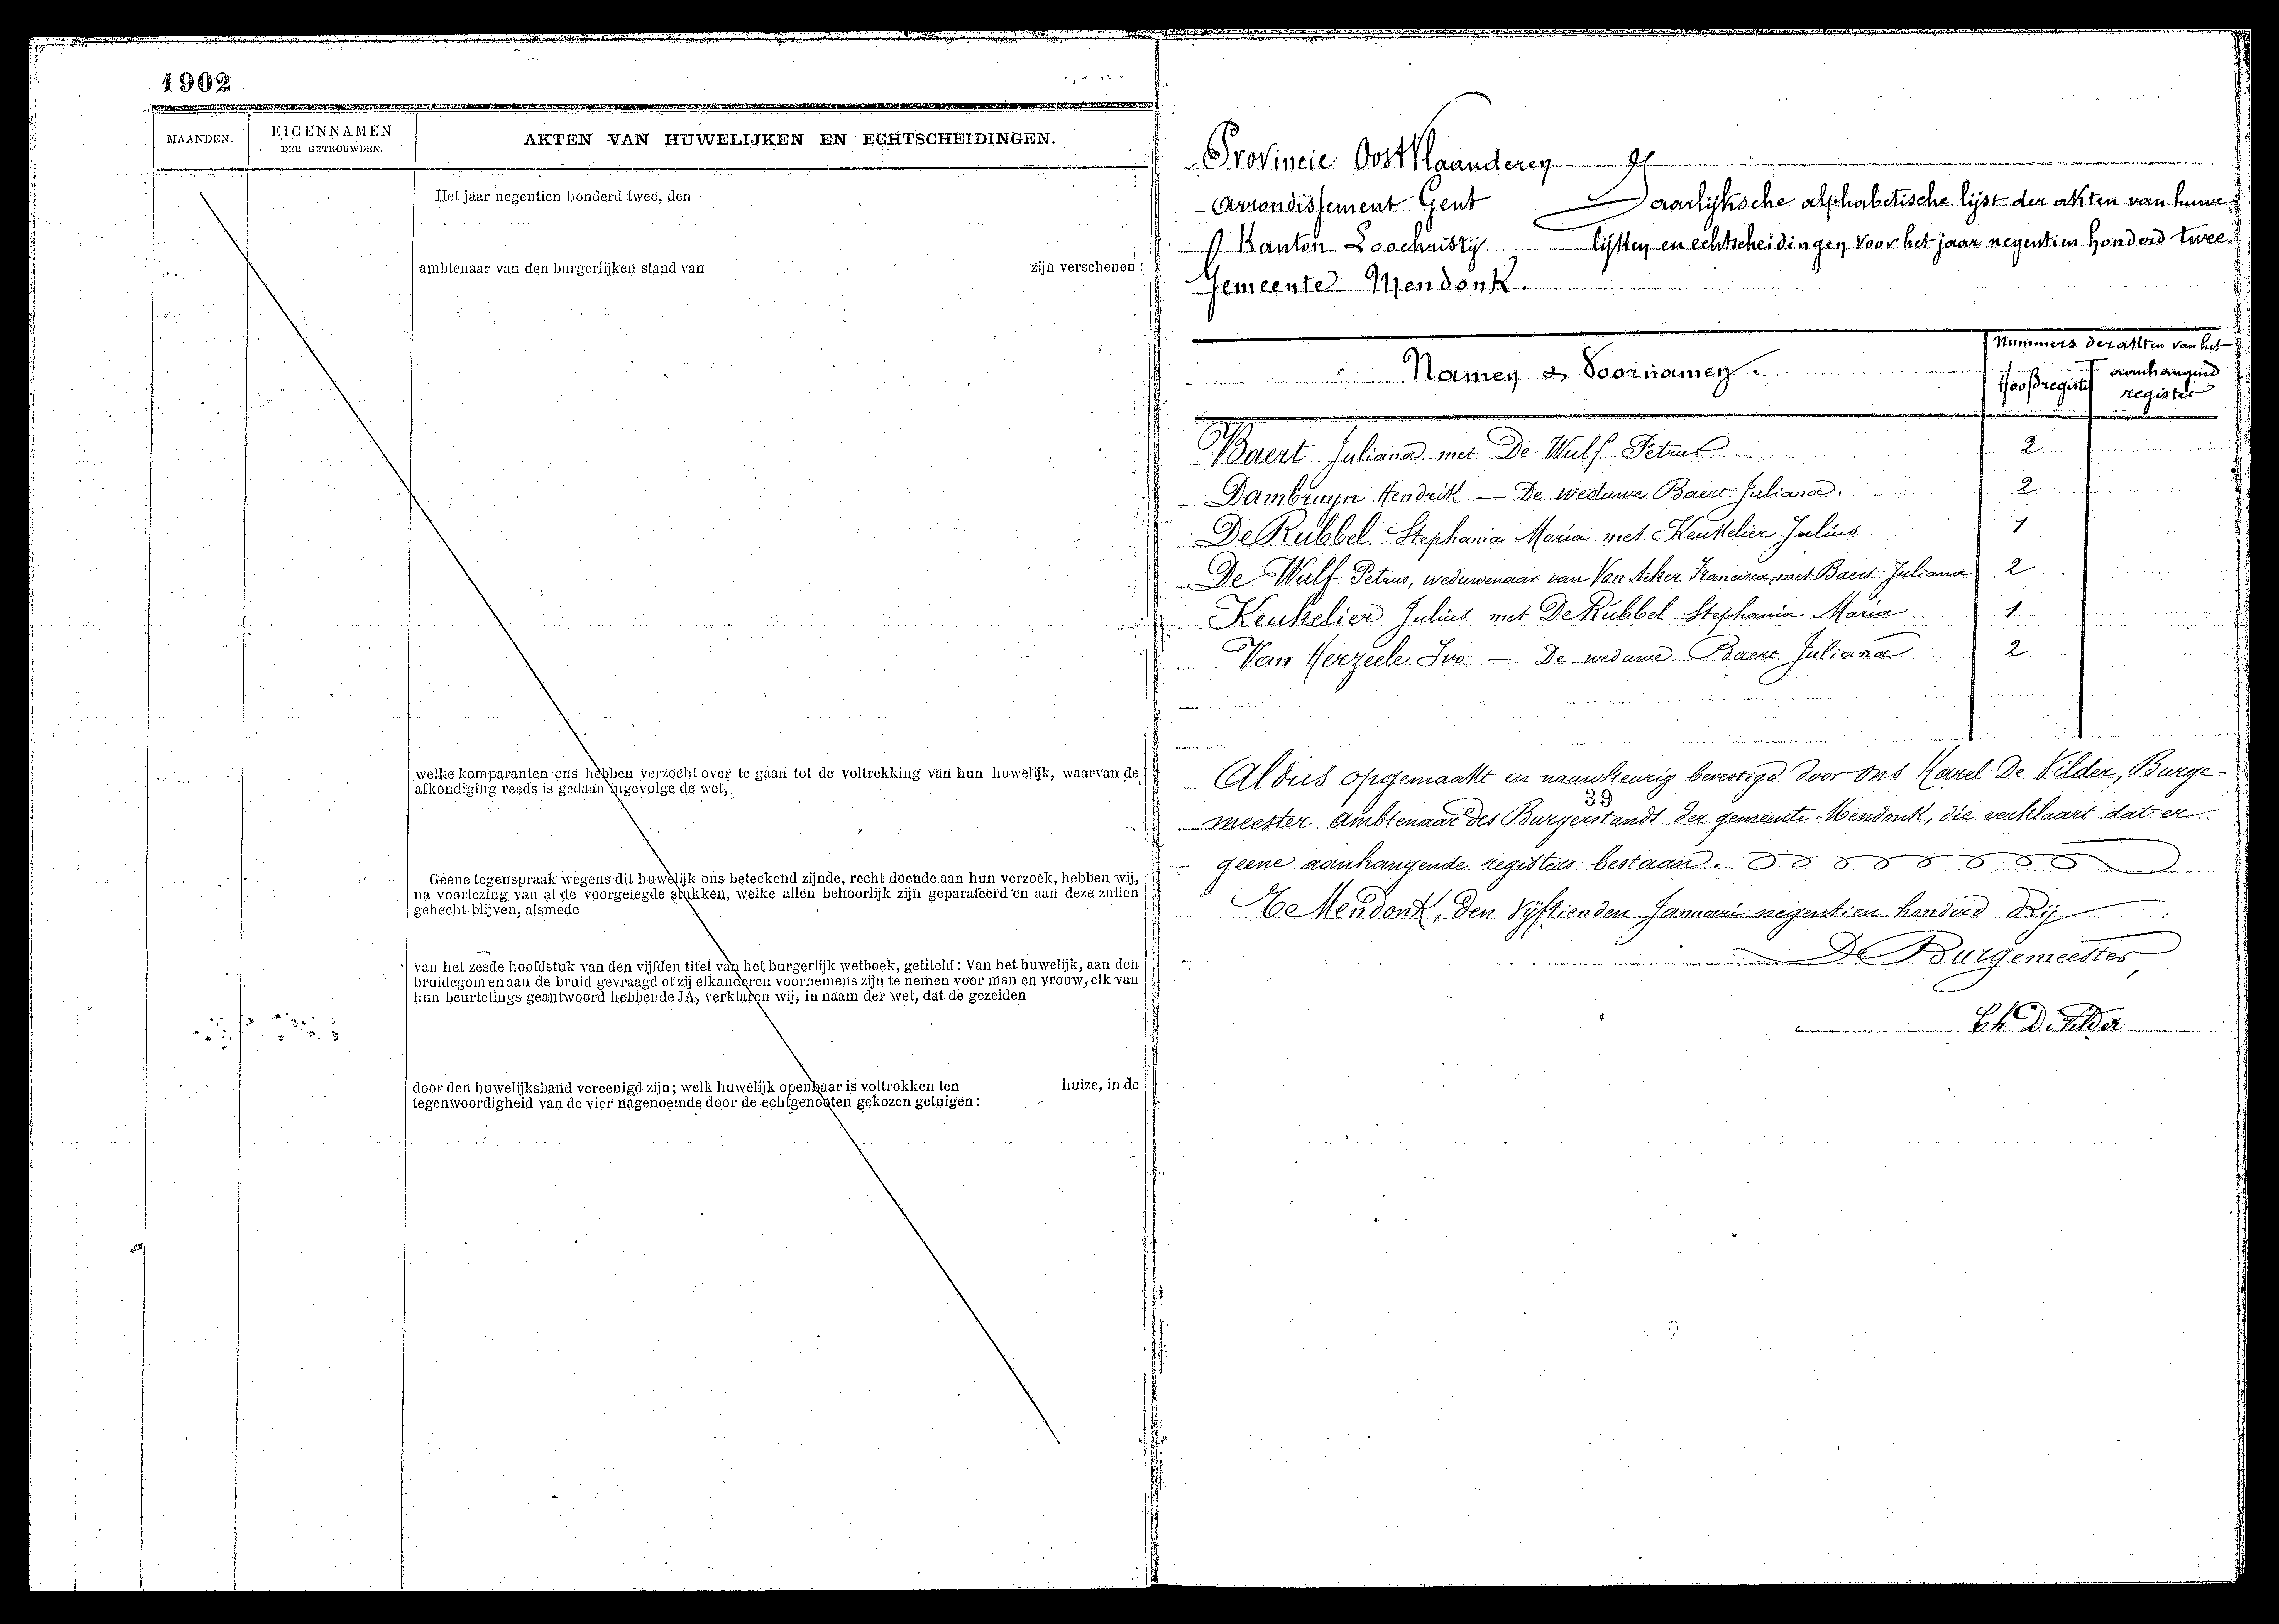 1902
MAANDEN.
EIGENNAMEN
DER GETROUWDEN.
AKTEN VAN HUWELIJKEN EN ECHTSCHEIDINGEN.
Het jaar negentien honderd twee, den
ambtenaar van den burgerlijken stand van zijn verschenen:
welke komparanten ons hebben verzocht over te gaan tot de voltrekking van hun huwelijk, waarvan de
afkondiging reeds is gedaan ingevolge de wet,
Geene tegenspraak wegens dit huwelijk ons beteekend zijnde, recht doende aan hun verzoek, hebben wij,
na voorlezing van al de voorgelegde stukken, welke allen behoorlijk zijn geparafeerd en aan deze zullen
gehecht blijven, alsmede
van het zesde hoofdstuk van den vijfden titel van het burgerlijk wetboek, getiteld: Van het huwelijk, aan den
bruidegom en aan de bruid gevraagd of zij elkanderen voornemens zijn te nemen voor man en vrouw, elk van
hun beurtelings geantwoord hebbende JA, verklaren wij, in naam der wet, dat de gezeiden
door den huwelijksband vereenigd zijn; welk huwelijk openbaar is voltrokken ten huize, in de
tegenwoordigheid van de vier nagenoemde door de echtgenooten gekozen getuigen:
Provincie Oost Vlaanderen
Arrondissement Gent
Kanton Loochristij
Gemeente Mendonk.
Jaarlijksche alphabetische lijst der akten van huwe-
lijken en echtscheidingen voor het jaar negentien honderd twee.
Namen & Voornamen.
Nummers der akten van het
Hoofdregister
aanhangend
register
Baert Juliana met De Wulf Petrus 2
Dambruyn Hendrik — De weduwe Baert Juliana. 2
De Rubbel Stephania Maria met Keukelier Julius 1
De Wulf Petrus, weduwenaar van Van Acker Francisca, met Baert Juliana 2
Keukelier Julius met De Rubbel Stephania Maria 1
Van Herzeele Ivo — De weduwe Baert Juliana 2
Aldus opgemaakt en nauwkeurig bevestigd door ons Karel De Vilder, Burge-
39
meester ambtenaar des Burgerstands der gemeente Mendonk, die verklaart dat er
geene aanhangende registers bestaan.
Te Mendonk, den vijftienden Januari negentien honderd drij
De Burgemeester,
Ch. De Vilder